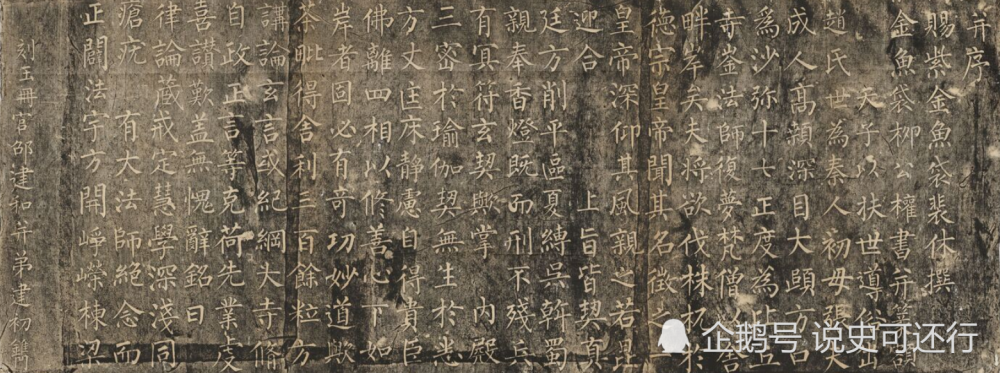 并序
賜紫金魚袋裴休撰
金魚袋柳公權書并篆額
天子以扶世導俗出
趙氏世為秦人初母張夫
成人高顙深目大頤方口
為沙弥十七正度為比丘
寺崟法師復夢梵僧以舍
畔岸矣夫將欲伐株杌於
德宗皇帝聞其名徵之一
皇帝深仰其風親之若昆
迎合上旨皆契真
廷方削平區夏縛吳斡蜀
親奉香燈既而刑不殘兵
有冥符玄契歟掌內殿
三密於瑜伽契無生於悉
方丈匡床静慮自得貴臣
佛離四相以修善心下如
岸者固必有奇功妙道歟
荼毗得舍利三百餘粒方
講論玄言或紀綱大寺脩
自政正言等克荷先業虔
喜讚歎盖無愧辭銘曰
律論藏戒定慧學深淺同
瘡疣有大法師絕念而
正闢法宇方開崢嶸棟梁
刻玉冊官邵建和并弟建初鐫
企鹅号 说史可还行